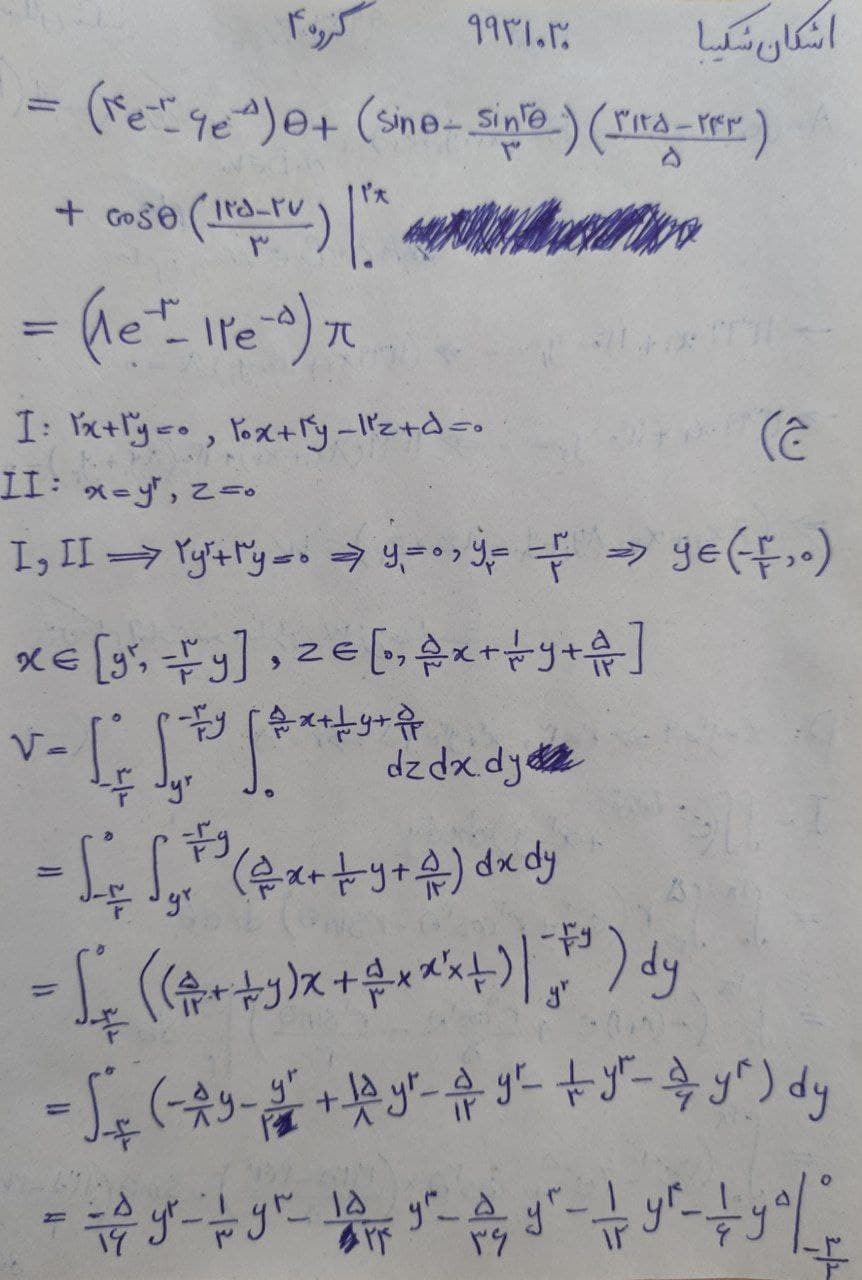 اشکان شکیبا ۹۹۳۱۰۳۰ گروه ۴
= (۴e^-۳ - ۶e^-۵)θ + (sinθ - sin^۳θ/۳)((۳۱۲۵-۲۴۳)/۵)
+ cosθ((۱۲۵-۲۷)/۳)|_۰^۲π
= (۸e^-۳ - ۱۲e^-۵)π
ج)
I: ۲x+۳y=۰ , ۲۰x+۴y-۱۲z+۵=۰
II: x=y^۲ , z=۰
I, II ⟹ ۲y^۲+۳y=۰ ⟹ y_۱=۰ , y_۲= -۳/۲ ⟹ y∈(-۳/۲, ۰)
x∈[y^۲, -۳/۲ y] , z∈[۰, ۵/۳ x + ۱/۳ y + ۵/۱۲]
V = ∫_{-۳/۲}^{۰} ∫_{y^۲}^{-۳/۲ y} ∫_{۰}^{۵/۳ x + ۱/۳ y + ۵/۱۲} dz dx dy
= ∫_{-۳/۲}^{۰} ∫_{y^۲}^{-۳/۲ y} (۵/۳ x + ۱/۳ y + ۵/۱۲) dx dy
= ∫_{-۳/۲}^{۰} ((۵/۱۲ + ۱/۳ y)x + ۵/۳ × x^۲ × ۱/۲)|_{y^۲}^{-۳/۲ y}) dy
= ∫_{-۳/۲}^{۰} (-۵/۸ y - y^۲/۲ + ۱۵/۸ y^۲ - ۵/۱۲ y^۲ - ۱/۳ y^۳ - ۵/۶ y^۴) dy
= -۵/۱۶ y^۲ - ۱/۳ y^۳ - ۱۵/۲۴ y^۳ - ۵/۳۶ y^۳ - ۱/۱۲ y^۴ - ۱/۶ y^۵ |_{-۳/۲}^{۰}